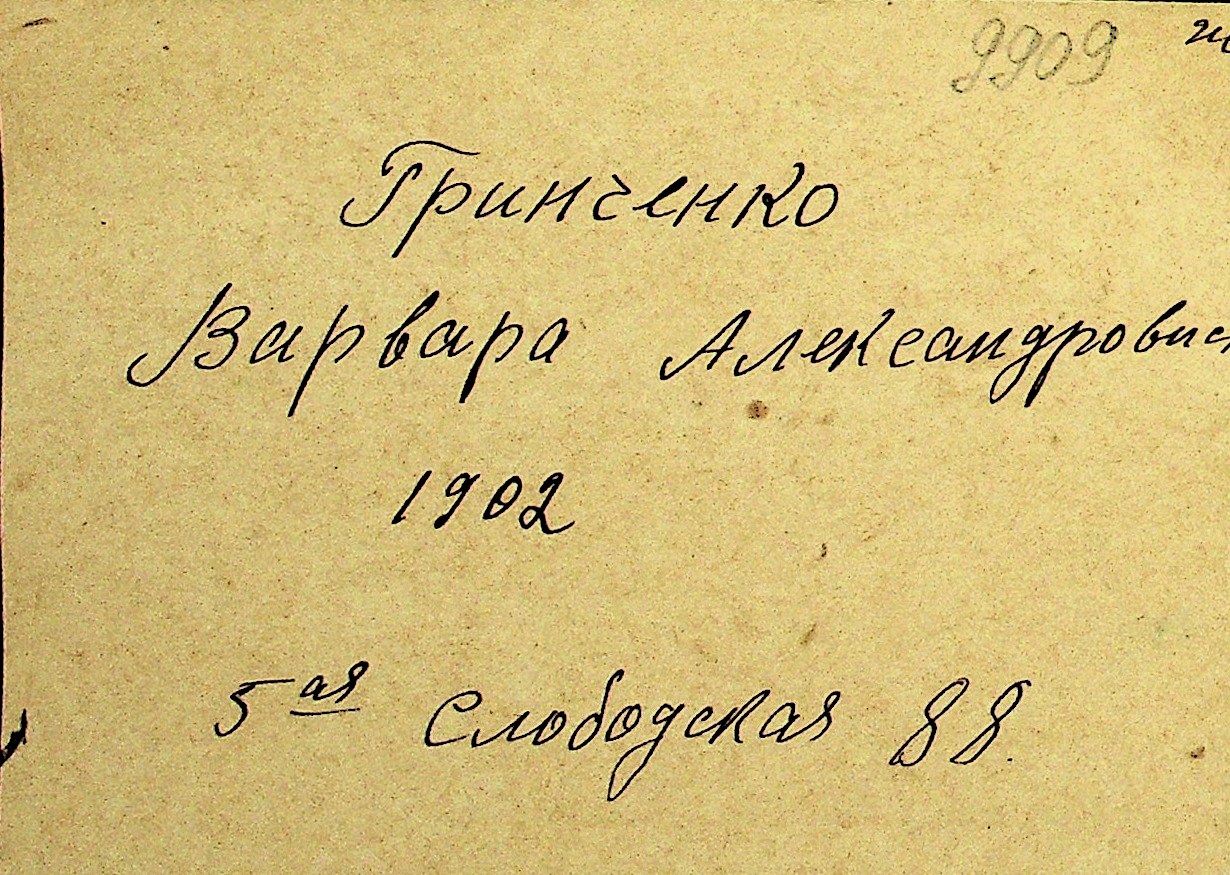 9909
Гринченко
Варвара Александрович
1902
5ая Слободская 88.